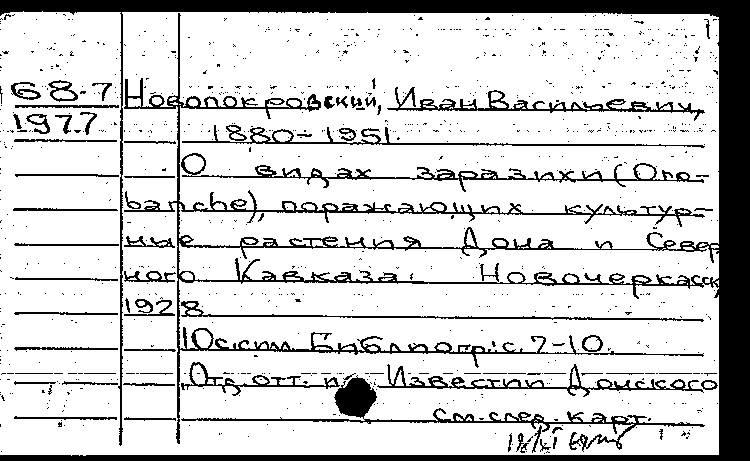 68-7 Новопокровский, Иван Васильевич,
1977 1880-1951.
О видах заразихи (Oro-
banche), поражающих культур-
ные растения Дона и Север
ного Кавказа. Новочеркасск
1928
10с. с илл. Библиогр.: с. 7-10.
"Отд. отт. из Известий Донского
см. след. карт.